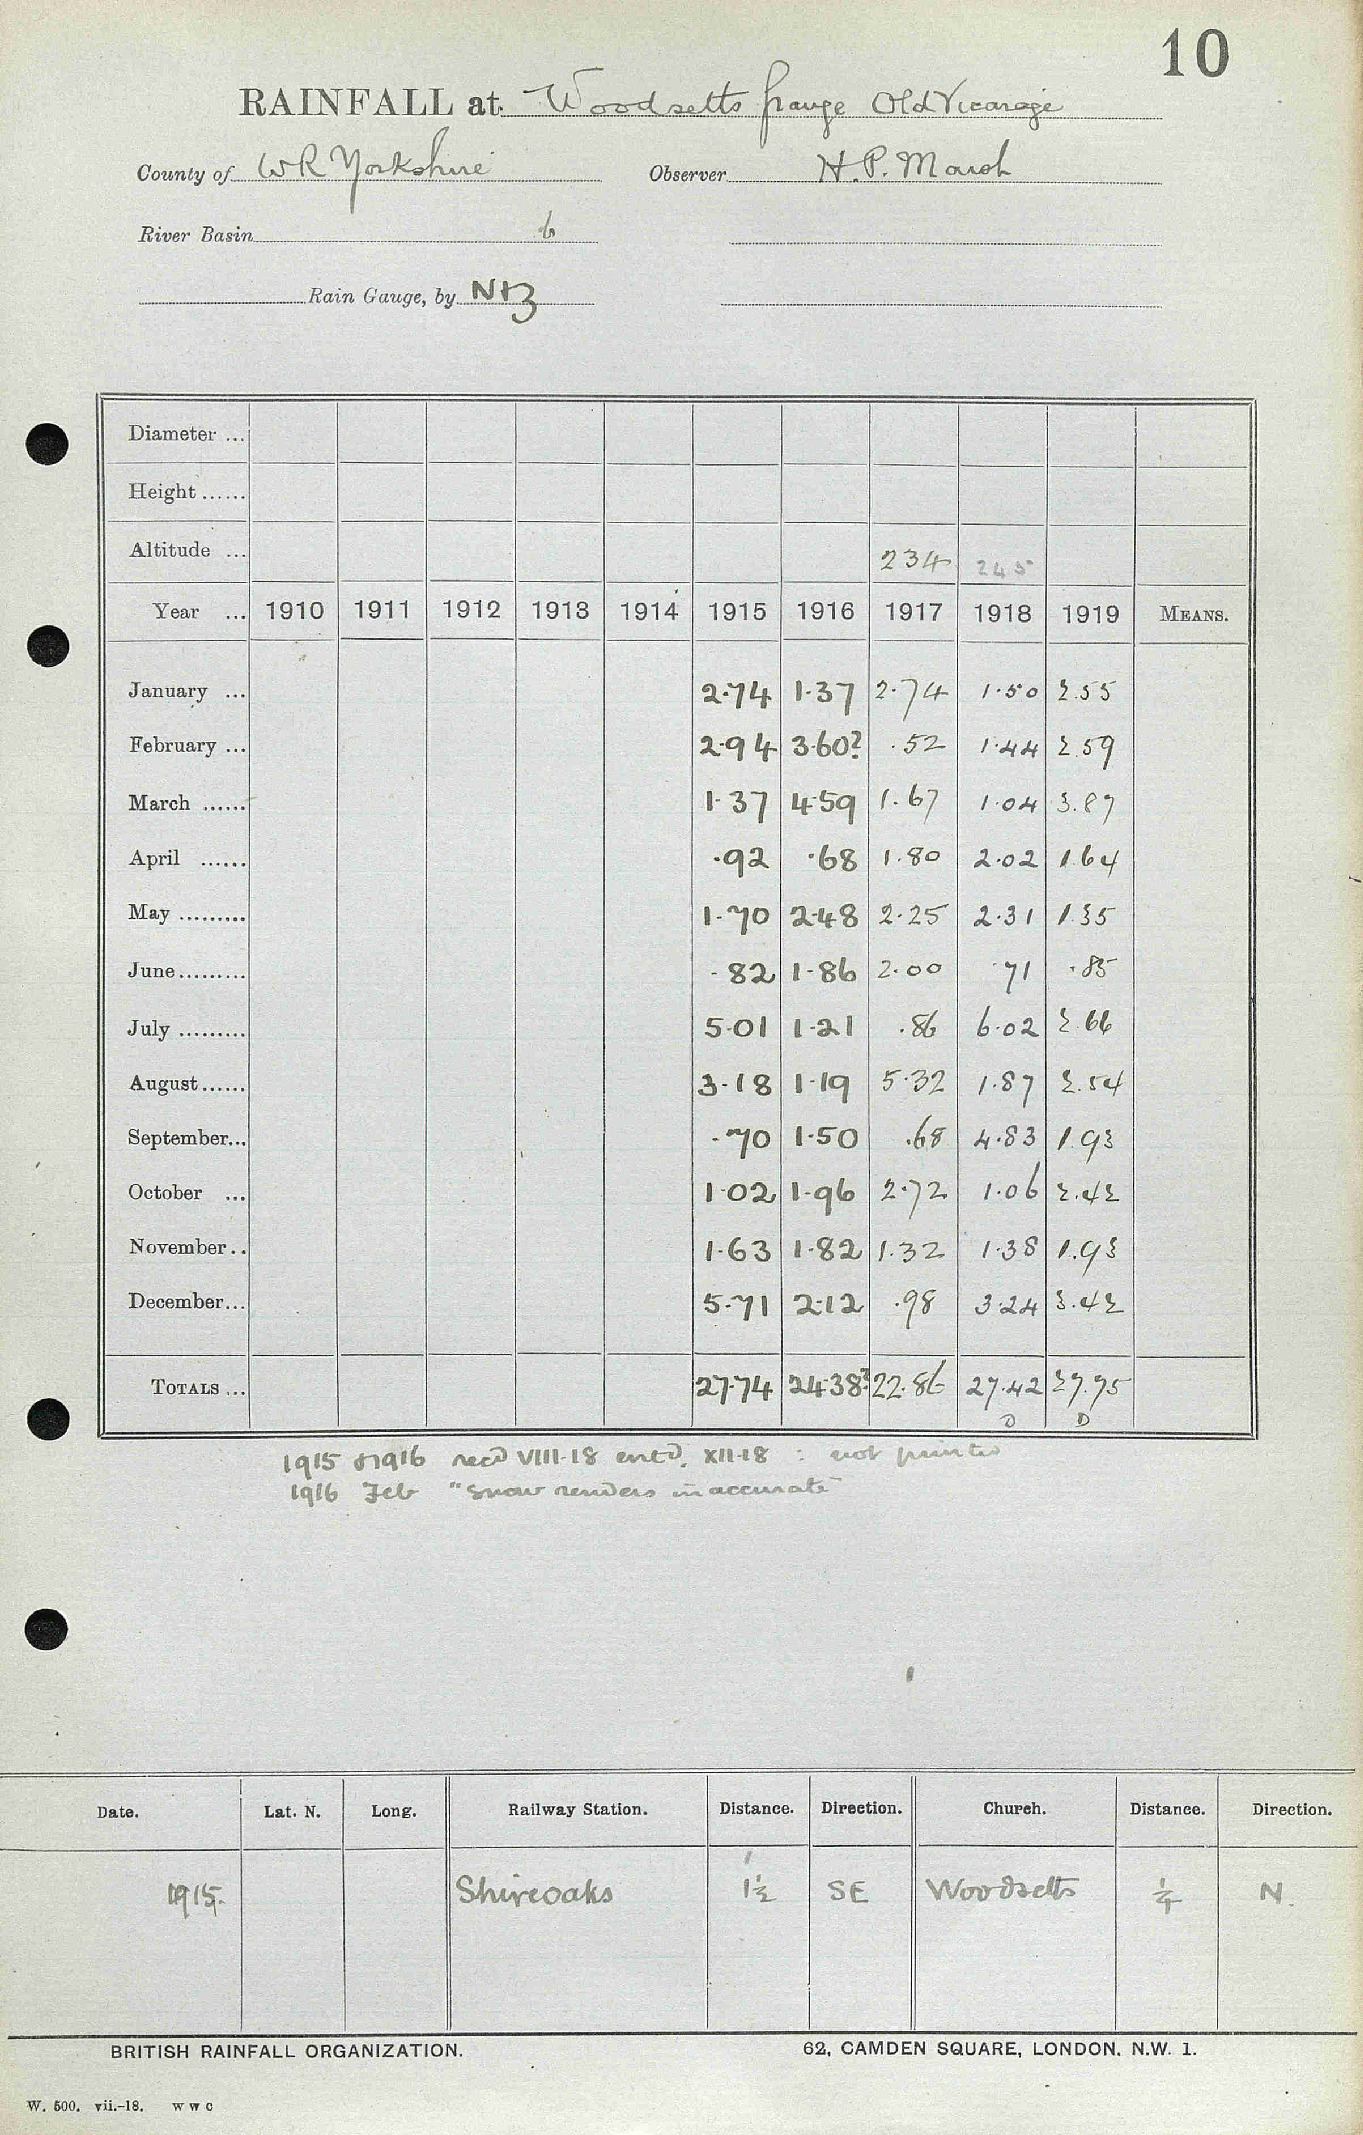 10
RAINFALL at Woodsetts Grange Old Vicarage
County of W R Yorkshire Observer H.P. Marsh
River Basin 6
Rain Gauge, by N+Z
Diameter ...
Height ......
Altitude ... 234 245
Year ... 1910 1911 1912 1913 1914 1915 1916 1917 1918 1919 MEANS.
January ... 2.74 1.37 2.74 1.50 2.55
February ... 2.94 3.60? .52 1.44 2.59
March ...... 1.37 4.59 1.67 1.04 3.87
April ...... .92 .68 1.80 2.02 1.64
May ......... 1.70 2.48 2.25 2.31 1.35
June ......... .82 1.86 2.00 .71 .85
July ......... 5.01 1.21 .86 6.02 2.66
August ...... 3.18 1.19 5.32 1.87 2.54
September... .70 1.50 .68 4.83 1.93
October ... 1.02 1.96 2.72 1.06 2.42
November .. 1.63 1.82 1.32 1.38 1.93
December... 5.71 2.12 .98 3.24 3.42
TOTALS ... 27.74 24.38? 22.86 27.42 27.75
D D
1915 & 1916 recd VIII-18 entd. XII-18 : not printed
1916 Feb "Snow renders inaccurate"
Date. Lat. N. Long. Railway Station. Distance. Direction. Church. Distance. Direction.
1915. Shireoaks 1½ SE Woodsetts ¼ N.
BRITISH RAINFALL ORGANIZATION. 62, CAMDEN SQUARE, LONDON, N.W. 1.
W. 500. vii.-18. W W C